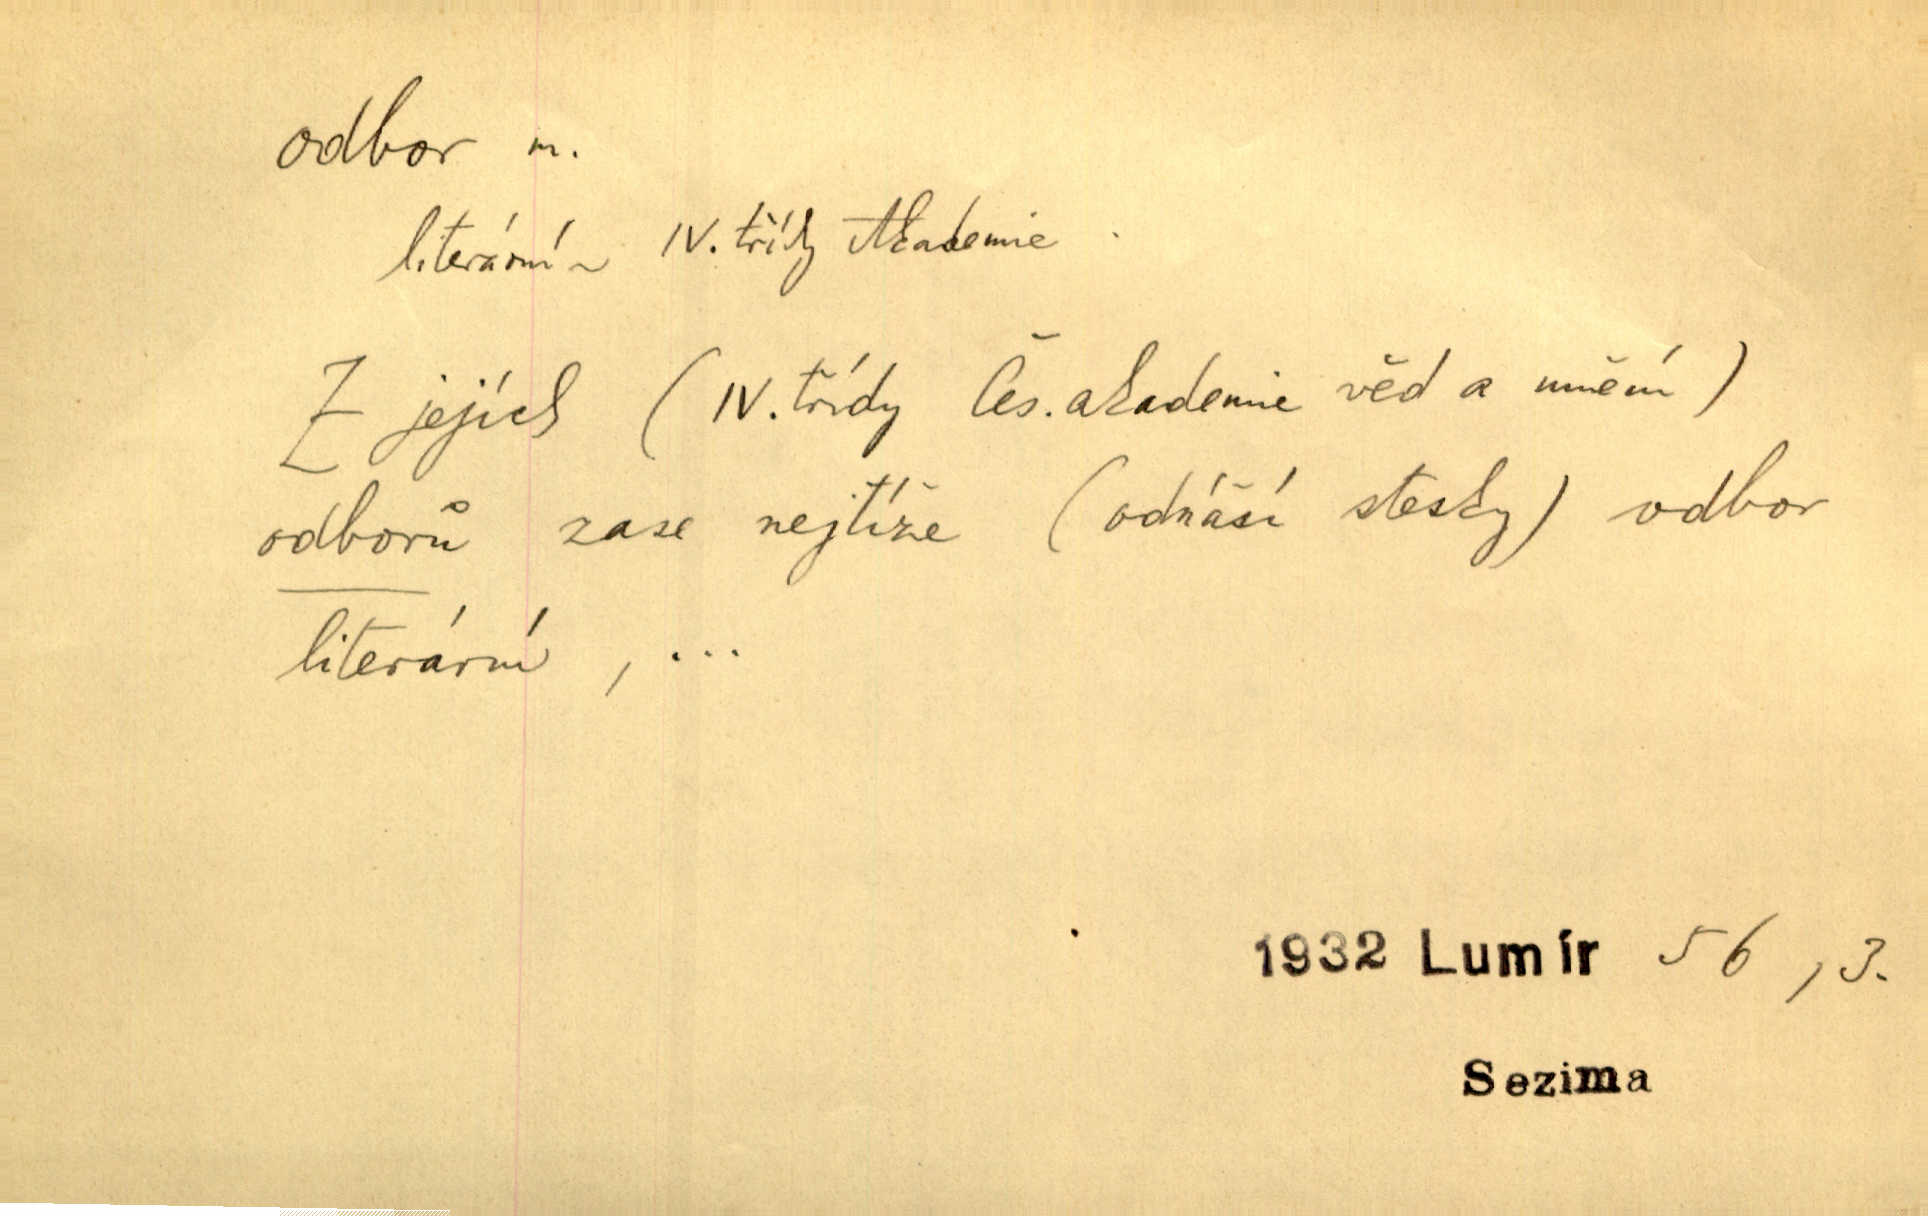 odbor m.
literární ~ IV. třídy Akademie
Z jejích (IV. třídy Čes. akademie věd a umění)
odborů zase nejtíže (odnáší stesky) odbor
literární, ...
1932 Lumír 56, 3.
Sezima